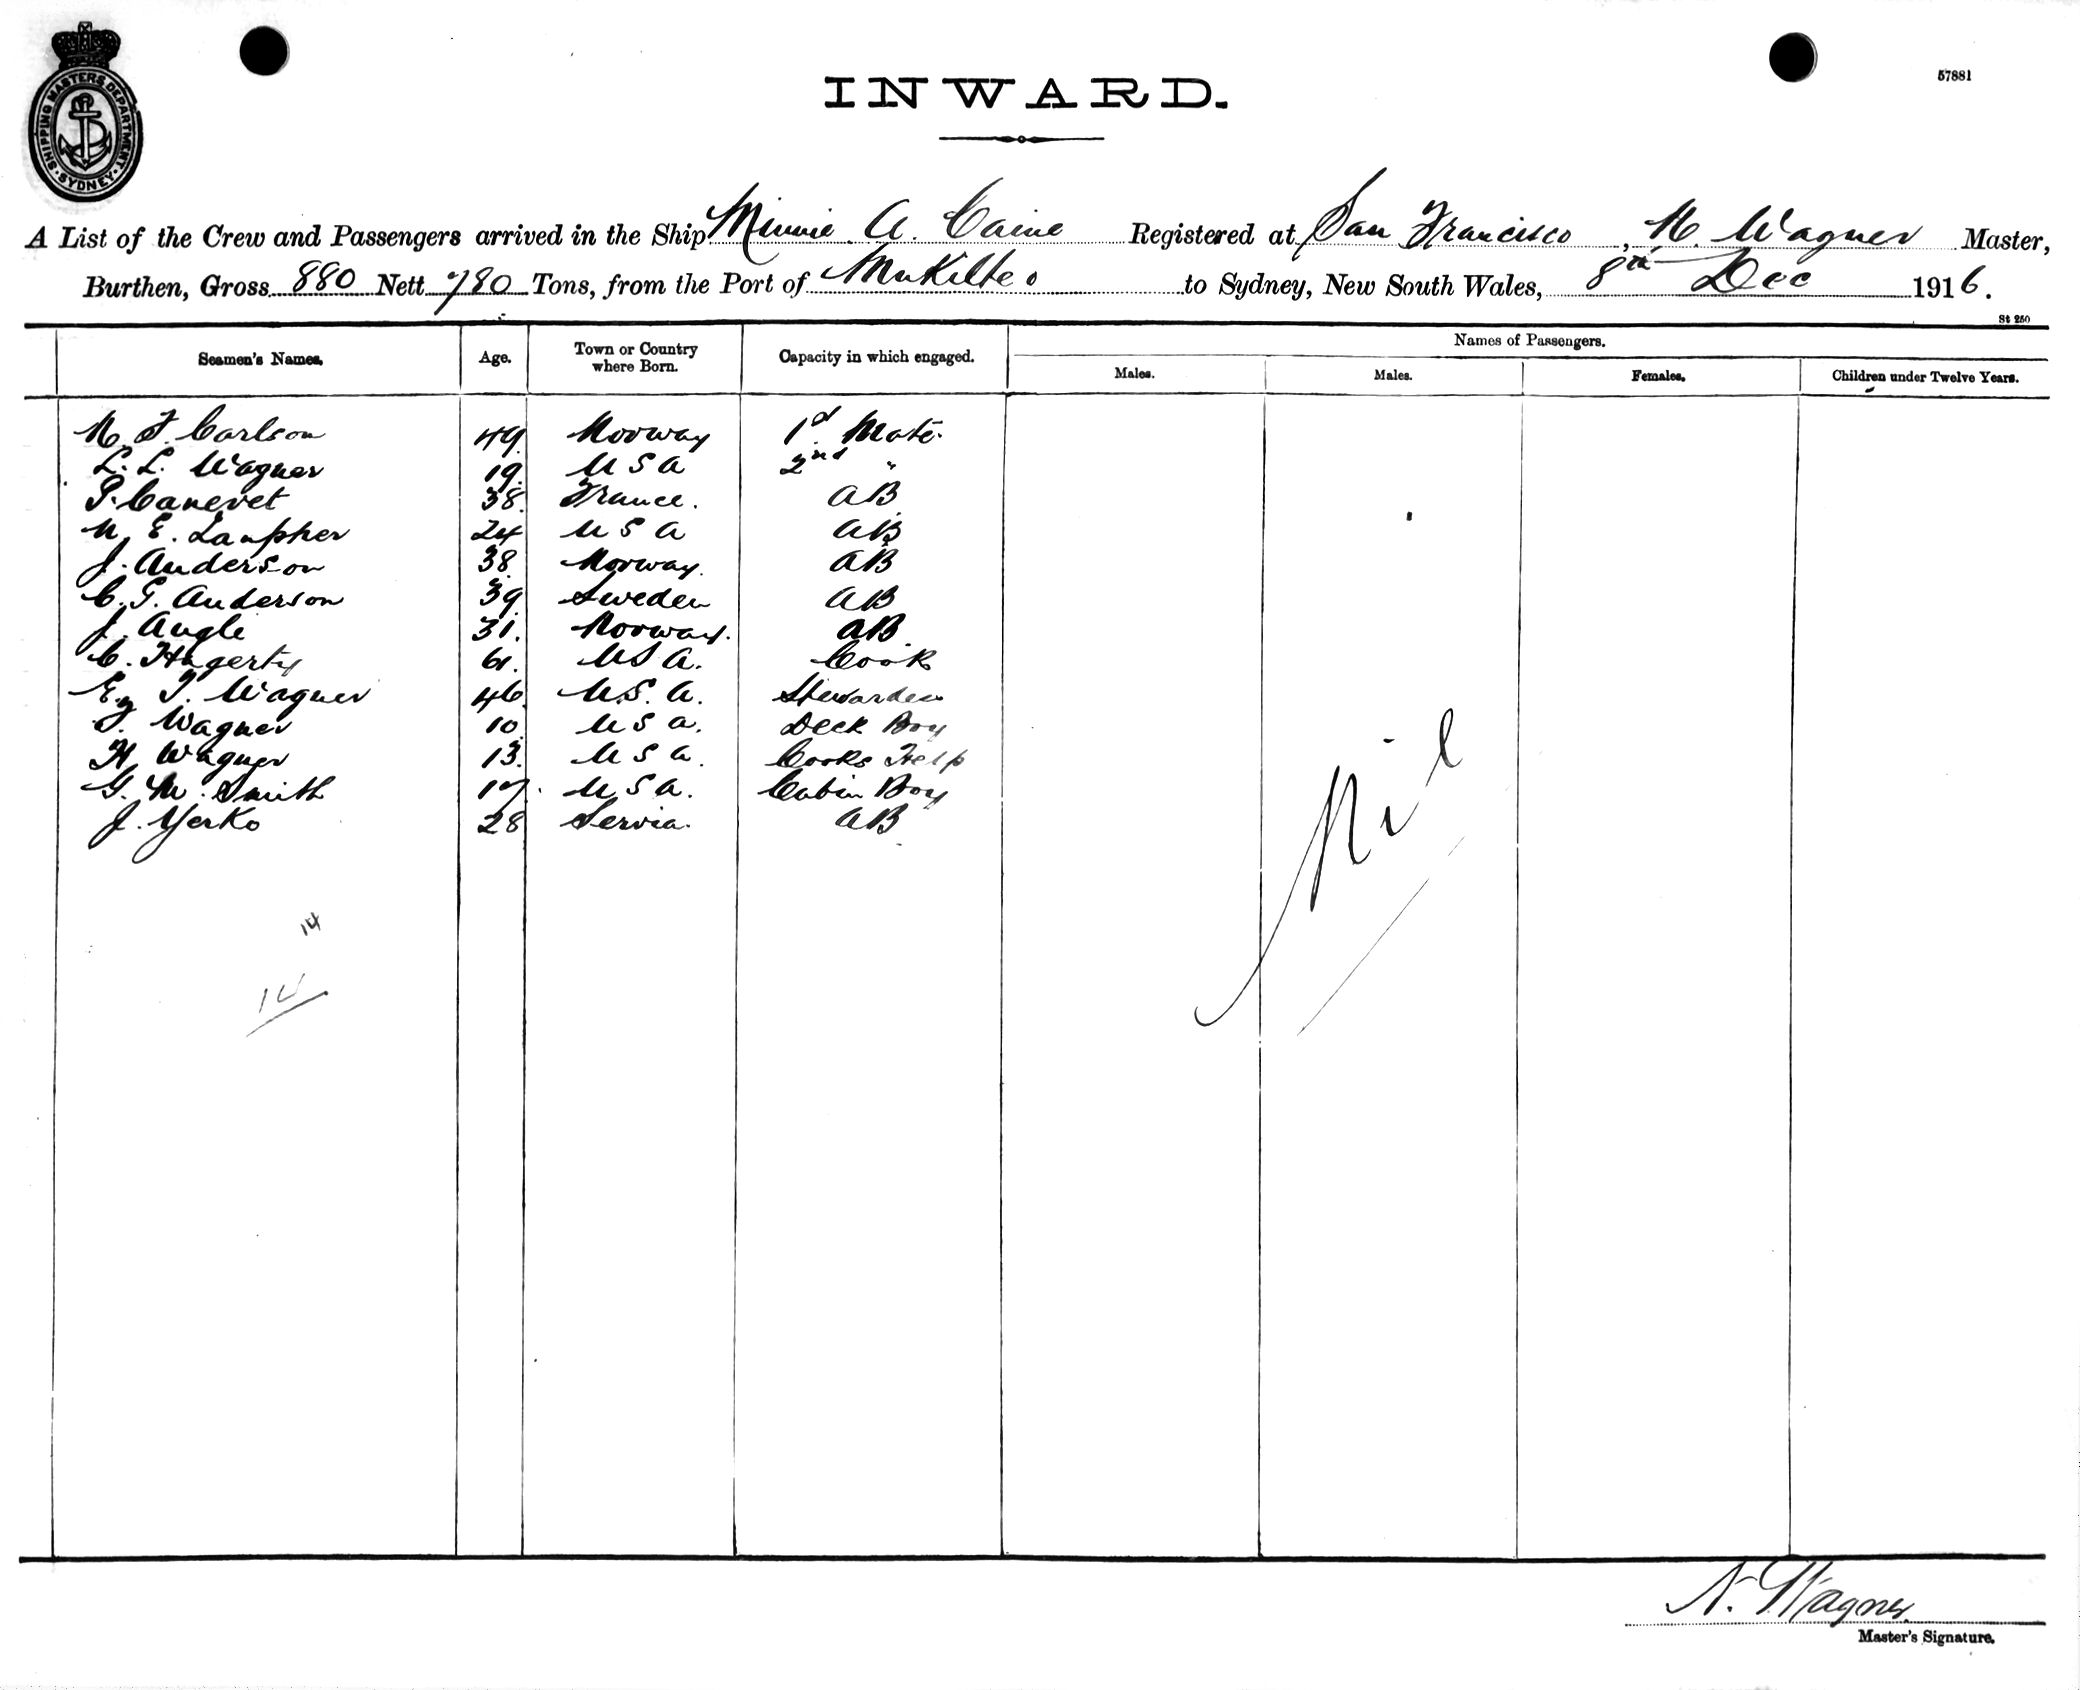 SHIPPING MASTERS DEPARTMENT
SYDNEY
57881
INWARD.
A List of the Crew and Passengers arrived in the Ship Minnie A. Caine Registered at San Francisco, N. Wagner Master,
Burthen, Gross 880 Nett 780 Tons, from the Port of Mukilteo to Sydney, New South Wales, 8th Dec 1916.
St 250
Seamen's Names. Age. Town or Country where Born. Capacity in which engaged. Names of Passengers.
Males. Males. Females. Children under Twelve Years.
Carlson 49 Norway 1st Mate.
L. L. Wagner 19. U S A 2nd "
P. Canevet 38. France. AB
E. Lanpher 24 U S A AB
J. Anderson 38. Norway. AB
C. G. Anderson 39. Sweden AB
J. Augli 31. Norway. AB
C. Hagerty 61. U S A. Cook
Wagner 46. U.S.A. Stewardess
Wagner 10. U S A. Deck Boy
H. Wagner 13. U S A. Cooks Help
G. W. Smith 17. U S A. Cabin Boy
J. Yerko 28 Servia. AB
Nil
14
14
N. Wagner
Master's Signature.